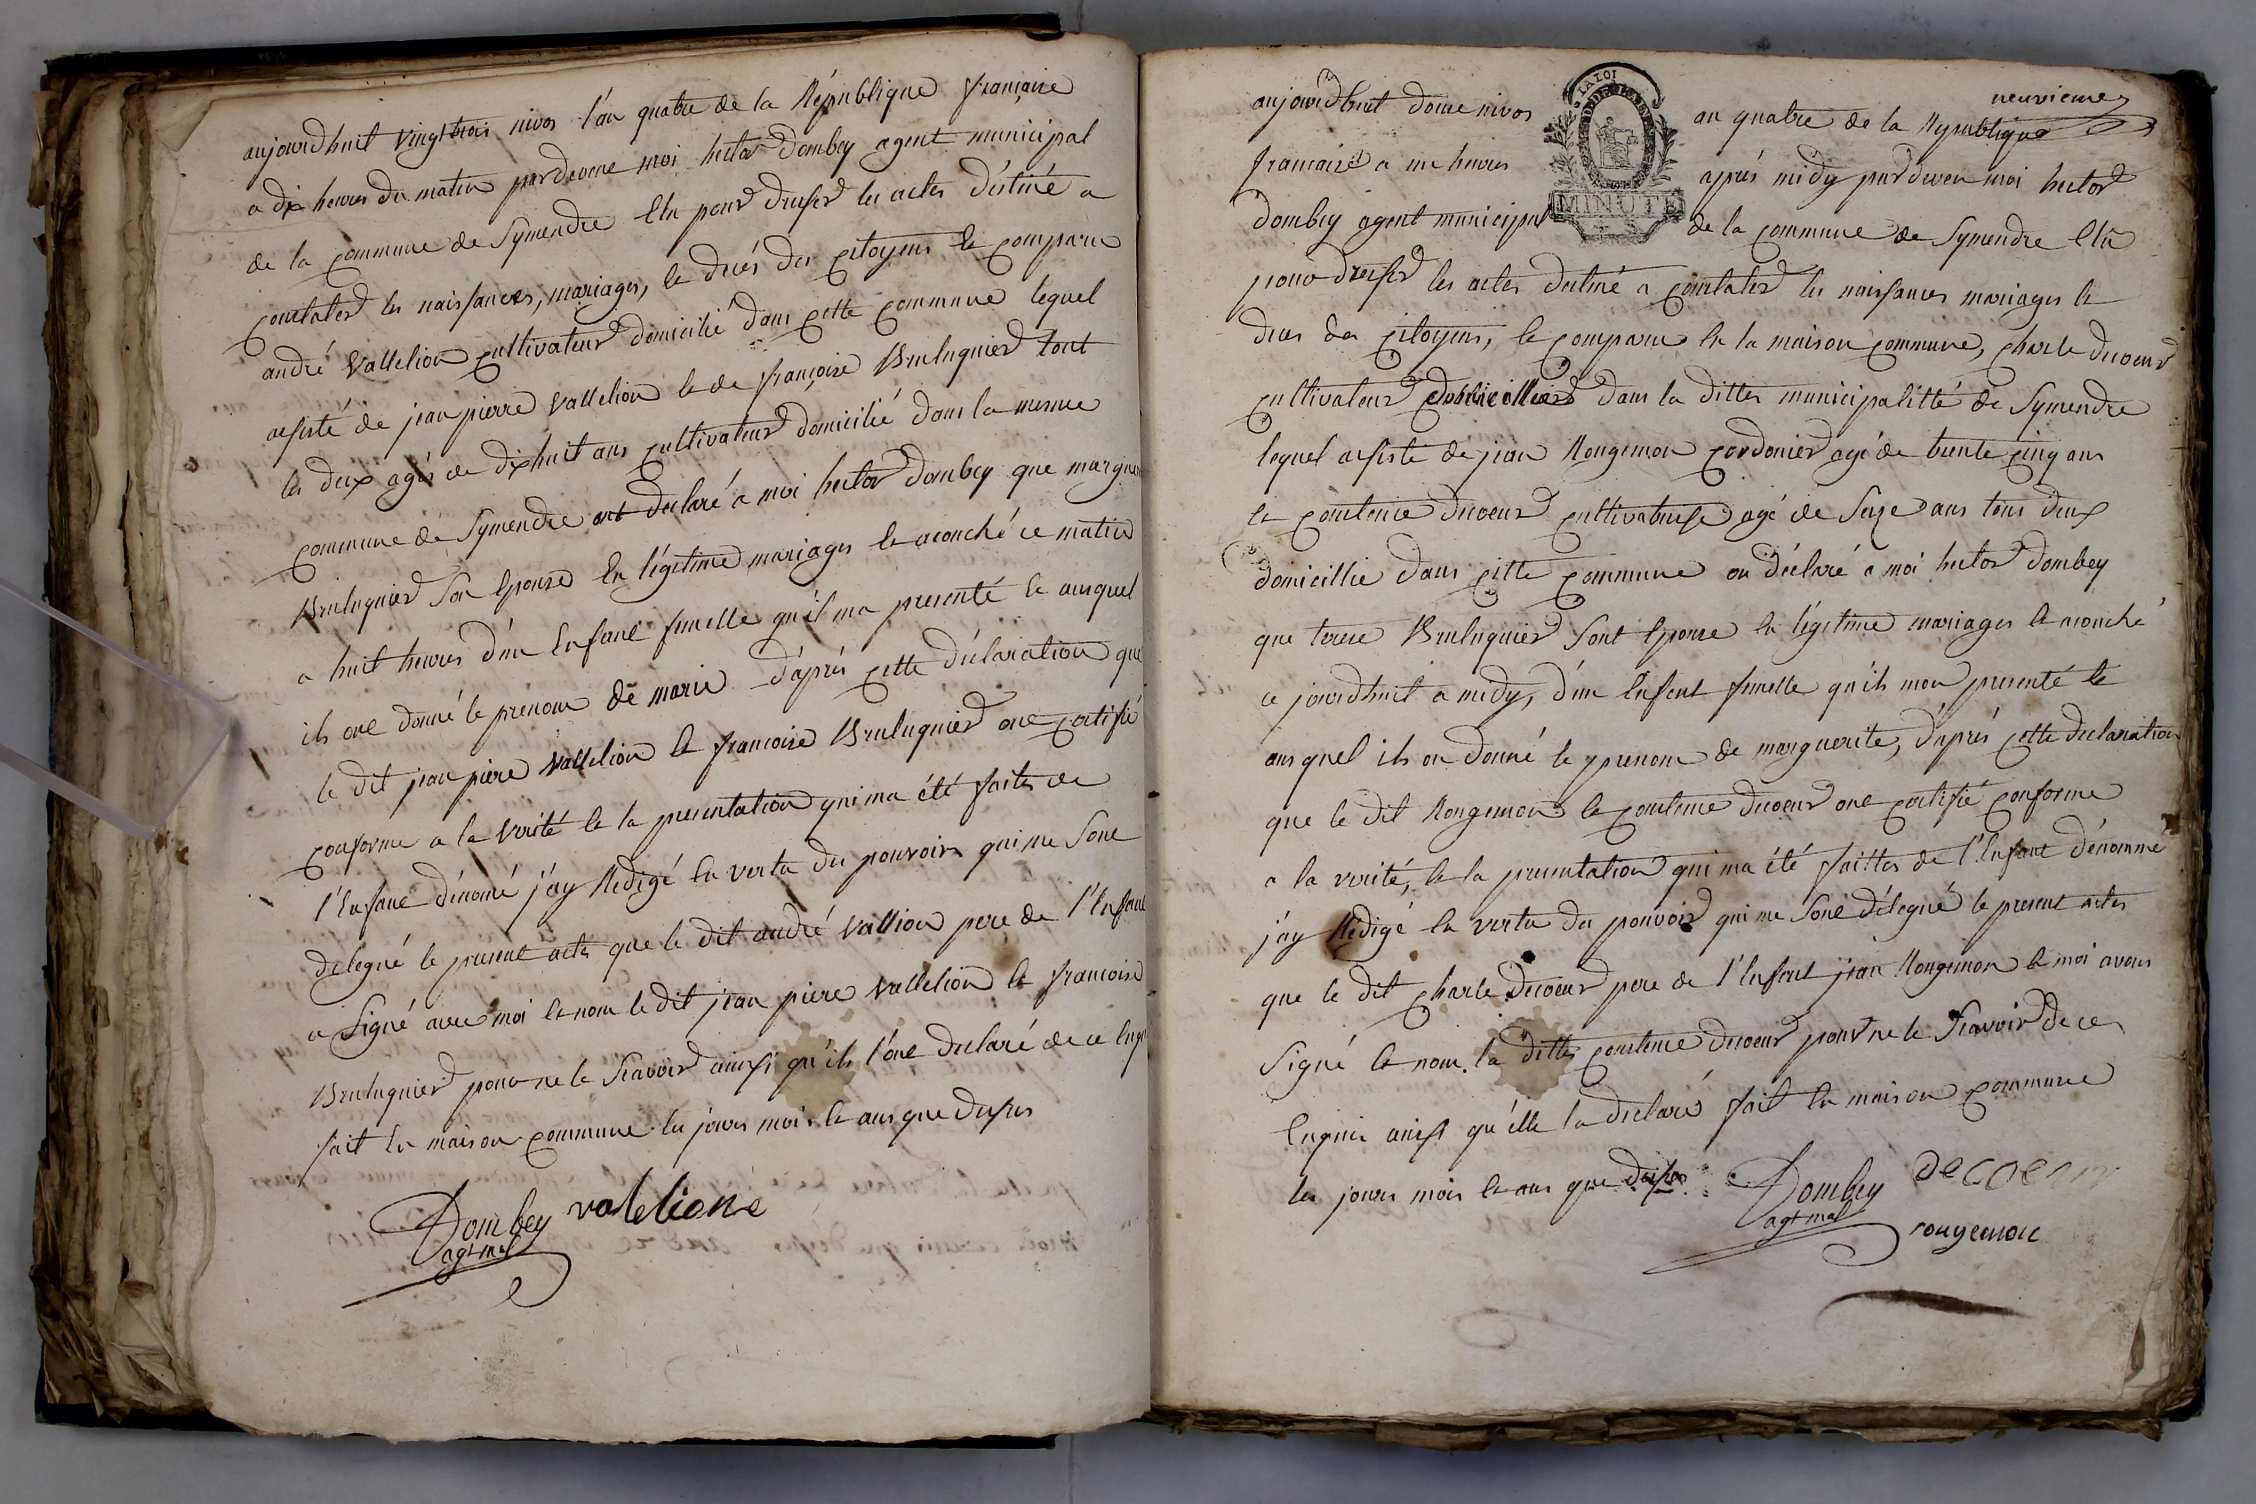 aujourdhuit vingt trois nivos l'an quatre de la République françaire
a dix heures du matin pardevene moi hector Dombey agent municipal
de la commune de Symendre Elu pour dresser les actes déstiné a
constater les naissances, mariages, et decés des citoyens et comparu
andré Vallelion cultivateur domicilié dans cette commune lequel
assisté de jean pierre vallelion et de françoise Bruluguier tout
les deux agés de dixhuit ans cultivateur domicilié dans la mesme
commune de Symendre ont declaré a moi hector Dombey que margue
Bruluguier Son Epouse En légitime mariages et acouché ce matin
a huit heures d'un Enfant femelle qu'il ma presenté et ausquel
ils one donné le prenom de marie d'aprés cette déclaration que
le dit jean piere vallelion et francoise Bruluguier one certifié
conforme a la verité et la presentation qui ma été faites de
l'Enfane dénomé j'ay Redigé En vertu des pouvoirs qui me Sone
delegué le presene actes que le dit andré vallion pere de l'Enfant
a Signé avec moi et nom le dit jean piere vallelion et francoise
Bruluguier pour ne le Scavoir ainsi qu'ils l'one declaré de ce Enqu
fait En maison commune les jours mois et ans que dessus
Dombey valelione
agt mal
neuvieme
aujourdhuit douze nivos an quatre de la Republique
LA LOI
MINUTE
francaise a une heures aprés midy pardeven moi hector
dombey agent municipal de la commune de Symendre Elu
pour dresser les actes destiné a constater les naissances mariages et
deces des citoyens, et comparu En la maison commune, charle decoeur
cultivateur domicillier dans la dittes municipalitté de Symendre
lequel assisté de jean Rougemon cordonier agé de trente cinq ans
et constence decoeur cultivateuse agé de Seize ans tous deux
domicillié dans cette commune on déclaré a moi hector dombey
que terese Bruluguier Sont Epouse En légitime mariages et acouché
ce jourdhuit a midy, d'un Enfent femelle qu'ils mon presenté et
ausquel ils on donné le prenom de marguerite, d'aprés cette declaration
que le dit Rougemon et constence decoeur one certifié conforme
a la verité, et la presentation qui ma été faittes de l'Enfant dénommé
j'ay Redigé En vertu du pouvoir qui me Sone délegué le present actes
que le dit charle decoeur pere de l'Enfent jean Rougemon et moi avons
Signé et nom la dittes constence decoeur pour ne le Scavoir de ce
Enquis ainsi qu'élle la declaré fait En maison commune
les jours mois et ans que dessus Dombey decoeur
agt mal
rougemon